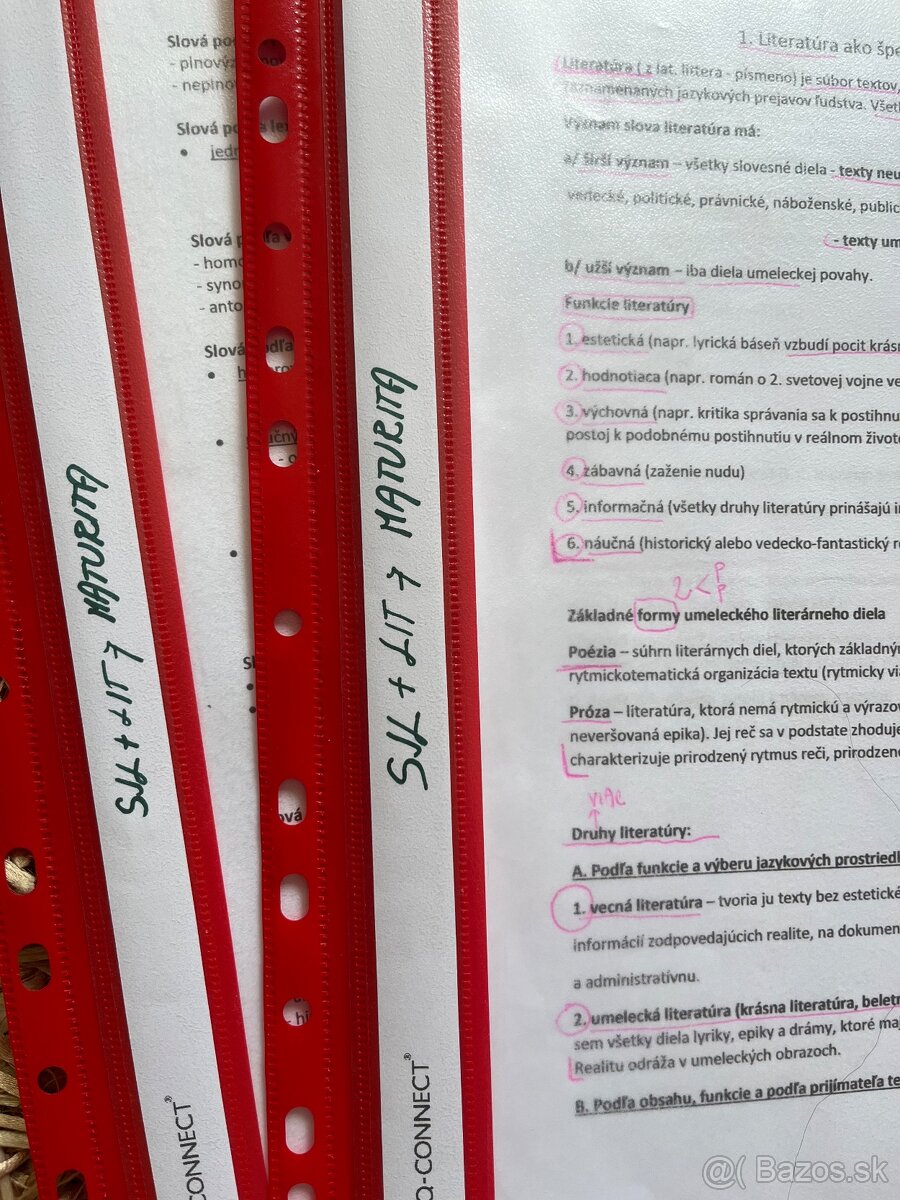 Slová po
- plnový
- neplno
Slová po
• jed
Slová p
- homo
- syno
- anto
Slová
SJL + LIT 7 MATURITA
Q-CONNECT®
SJL + LIT 7 MATURITA
CONNECT®
1. Literatúra ako špe
Literatúra ( z lat. littera - písmeno) je súbor textov,
zaznamenaných jazykových prejavov ľudstva. Všet
Význam slova literatúra má:
a/ širší význam – všetky slovesné diela - texty neu
vedecké, politické, právnické, náboženské, public
- texty um
b/ užší význam – iba diela umeleckej povahy.
Funkcie literatúry
1. estetická (napr. lyrická báseň vzbudí pocit krásn
2. hodnotiaca (napr. román o 2. svetovej vojne ve
3. výchovná (napr. kritika správania sa k postihnu
postoj k podobnému postihnutiu v reálnom život
4. zábavná (zaženie nudu)
5. informačná (všetky druhy literatúry prinášajú i
6. náučná (historický alebo vedecko-fantastický r
2 < P
P
Základné formy umeleckého literárneho diela
Poézia – súhrn literárnych diel, ktorých základný
rytmickotematická organizácia textu (rytmicky via
Próza – literatúra, ktorá nemá rytmickú a výrazov
neveršovaná epika). Jej reč sa v podstate zhoduje
charakterizuje prirodzený rytmus reči, prirodzen
viac
Druhy literatúry:
A. Podľa funkcie a výberu jazykových prostried
1. vecná literatúra – tvoria ju texty bez estetické
informácií zodpovedajúcich realite, na dokumen
a administratívnu.
2. umelecká literatúra (krásna literatúra, beletr
sem všetky diela lyriky, epiky a drámy, ktoré maj
Realitu odráža v umeleckých obrazoch.
B. Podľa obsahu, funkcie a podľa prijímateľa te
@( Bazos.sk